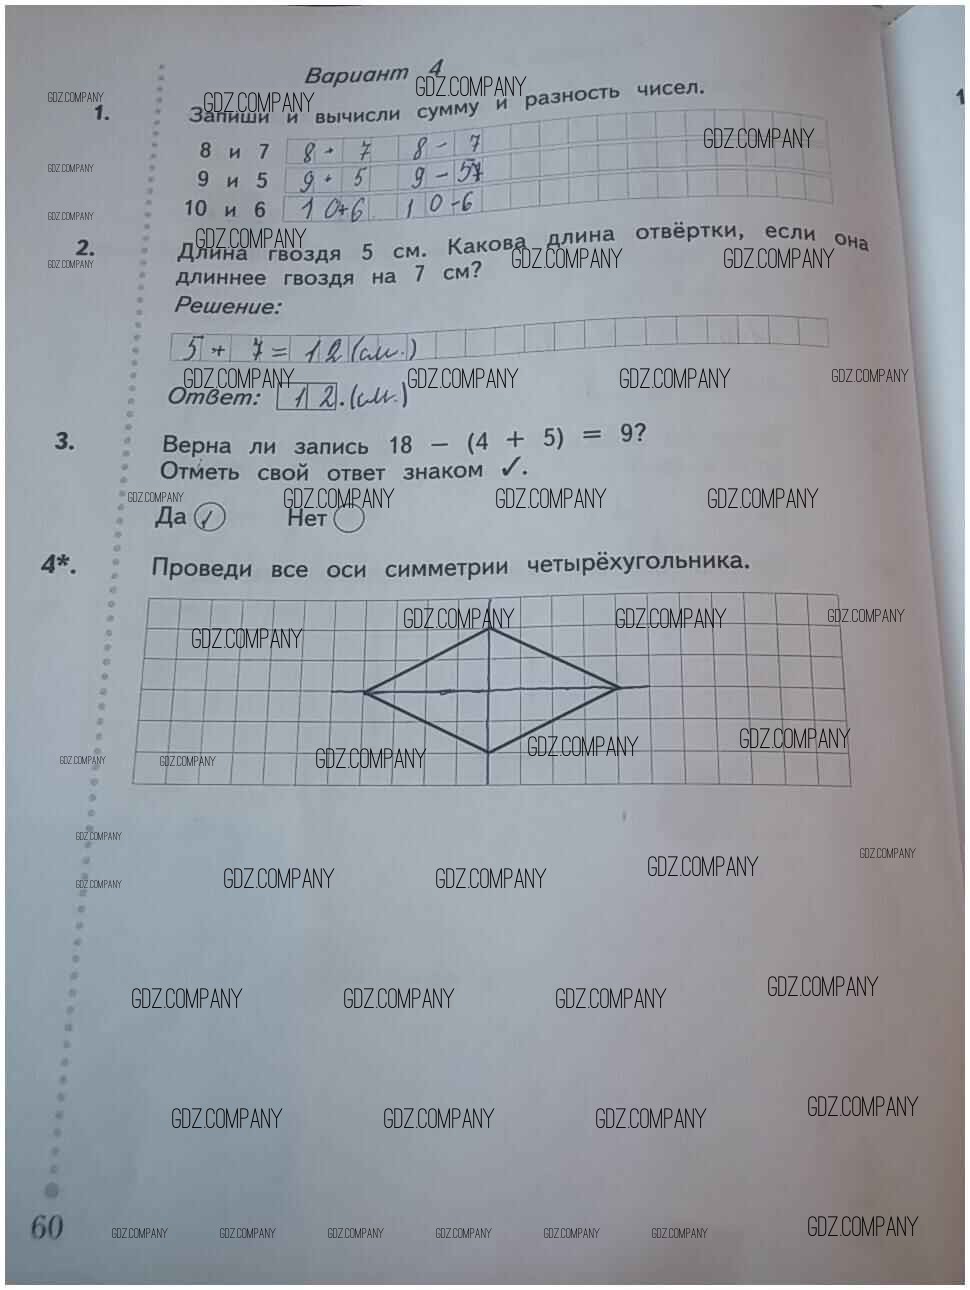 Вариант 4
GDZ.COMPANY
GDZ.COMPANY GDZ.COMPANY
1. Запиши и вычисли сумму и разность чисел.
GDZ.COMPANY
8 и 7 8 + 7 8 - 7
GDZ.COMPANY
9 и 5 9 + 5 9 - 5
GDZ.COMPANY
10 и 6 10+6 10-6
GDZ.COMPANY
2. Длина гвоздя 5 см. Какова длина отвёртки, если она
GDZ.COMPANY GDZ.COMPANY GDZ.COMPANY
длиннее гвоздя на 7 см?
Решение:
5 + 7 = 12 (см.)
GDZ.COMPANY GDZ.COMPANY GDZ.COMPANY GDZ.COMPANY
Ответ: 12. (см.)
3. Верна ли запись 18 − (4 + 5) = 9?
Отметь свой ответ знаком ✓.
GDZ.COMPANY GDZ.COMPANY GDZ.COMPANY GDZ.COMPANY
Да ✓ Нет
4*. Проведи все оси симметрии четырёхугольника.
GDZ.COMPANY GDZ.COMPANY GDZ.COMPANY GDZ.COMPANY
GDZ.COMPANY GDZ.COMPANY GDZ.COMPANY GDZ.COMPANY GDZ.COMPANY
GDZ.COMPANY
GDZ.COMPANY
GDZ.COMPANY GDZ.COMPANY GDZ.COMPANY GDZ.COMPANY
GDZ.COMPANY GDZ.COMPANY GDZ.COMPANY GDZ.COMPANY
GDZ.COMPANY GDZ.COMPANY GDZ.COMPANY GDZ.COMPANY
60 GDZ.COMPANY GDZ.COMPANY GDZ.COMPANY GDZ.COMPANY GDZ.COMPANY GDZ.COMPANY GDZ.COMPANY